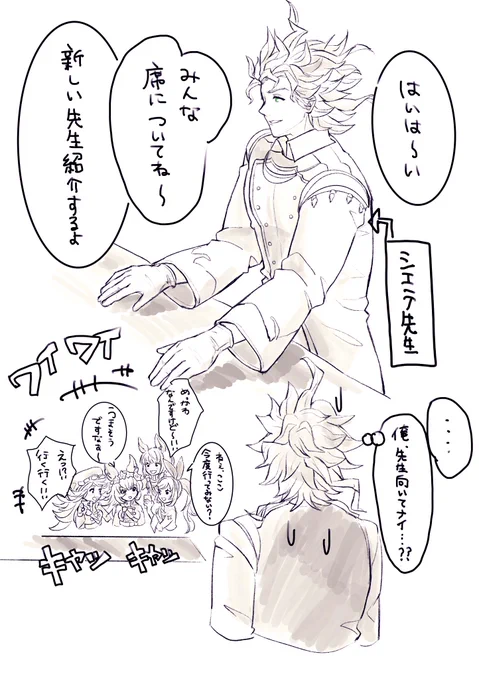 はいは〜い
みんな
席についてね〜
新しい先生紹介するよ
シエテ先生
ワイワイ
めっちゃ
なんですけど〜!!
ねぇ、ここ
今度行ってみない?
つまそう
ですなぁ!
えっ!?
行く行く!!
キャッ キャッ
....
俺、先生向いてナイ…??